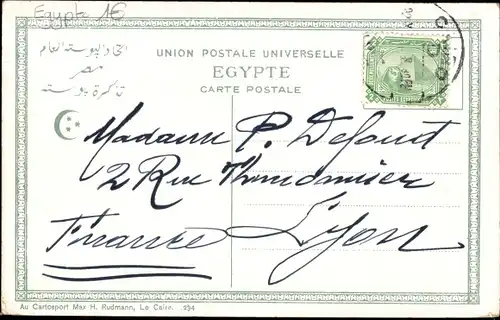 Egypt 1€
UNION POSTALE UNIVERSELLE
EGYPTE
CARTE POSTALE
اتحاد البوستة العام
مصر
تذكرة بوستة
Madame P. Defout
2 Rue
Lyon
France
Au Cartosport Max H. Rudmann, Le Caire. 234